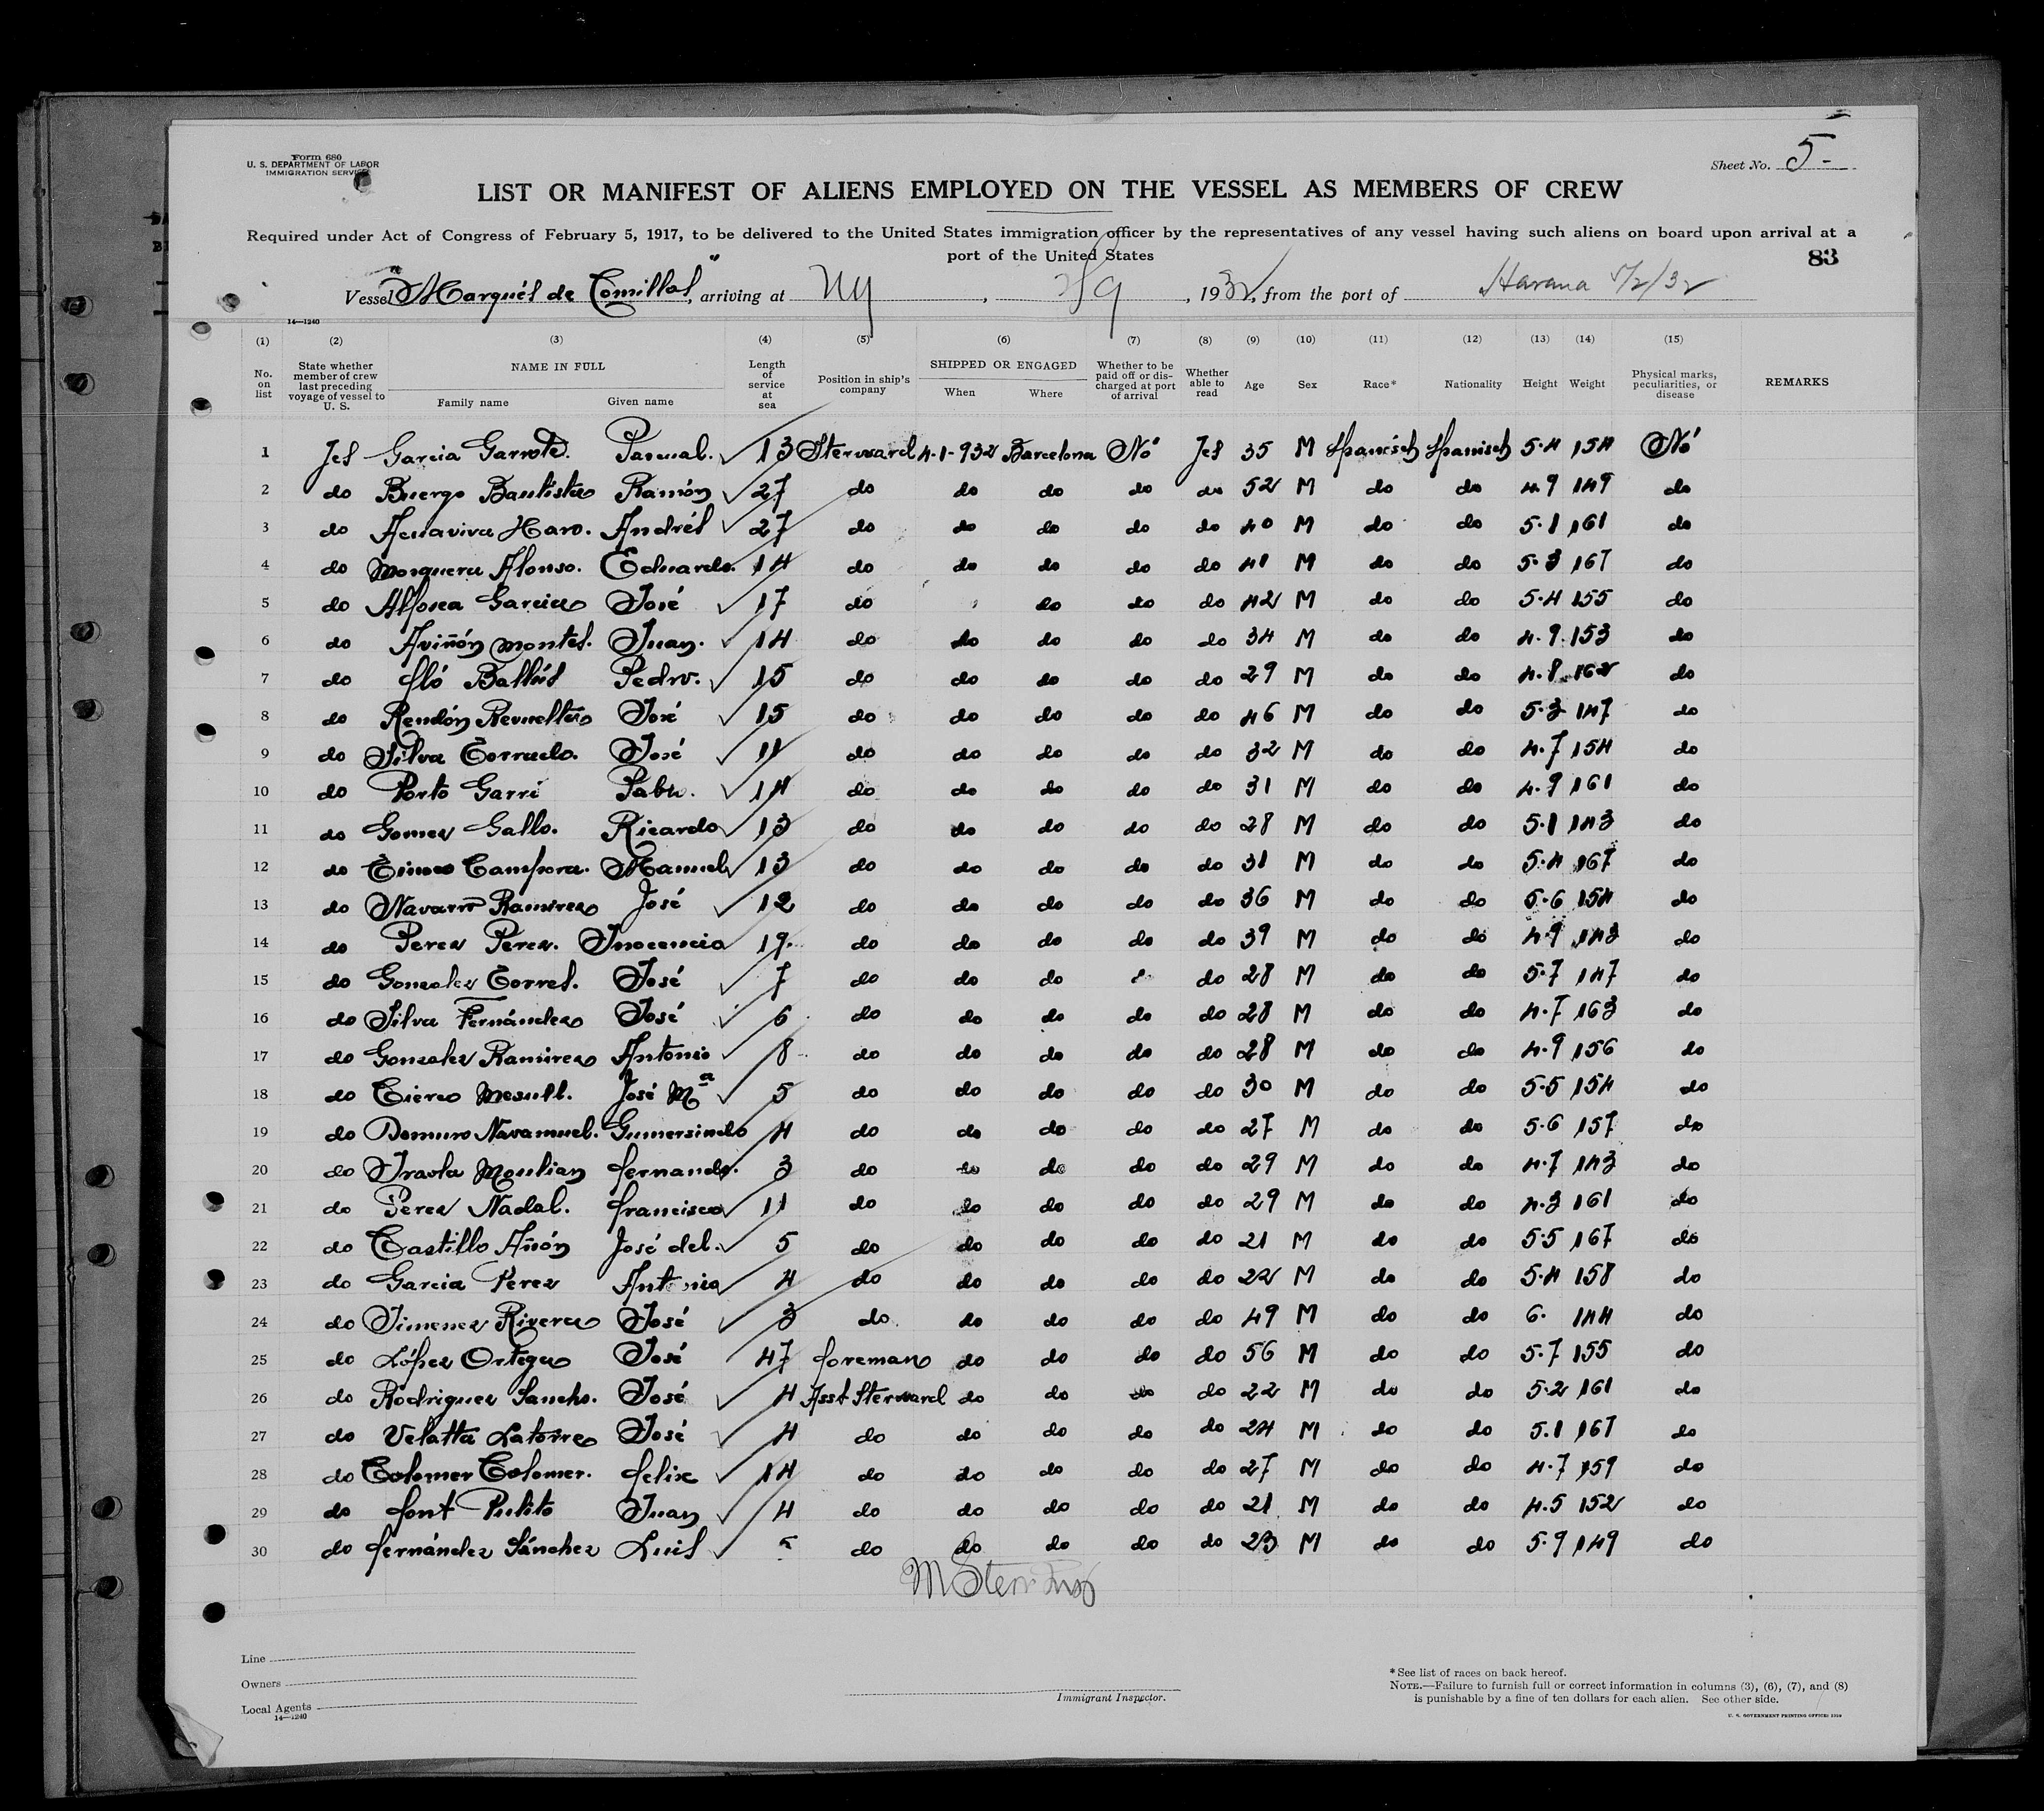 Form 680
U. S. DEPARTMENT OF LABOR
IMMIGRATION SERVICE
Sheet No. 5-
LIST OR MANIFEST OF ALIENS EMPLOYED ON THE VESSEL AS MEMBERS OF CREW
Required under Act of Congress of February 5, 1917, to be delivered to the United States immigration officer by the representatives of any vessel having such aliens on board upon arrival at a
port of the United States
83
Vessel "Marqués de Comillas", arriving at NY, 1932, from the port of Havana 5/2/32
14—1240
(1) (2) (3) (4) (5) (6) (7) (8) (9) (10) (11) (12) (13) (14) (15)
No. on list State whether member of crew last preceding voyage of vessel to U. S. NAME IN FULL Family name Given name Length of service at sea Position in ship's company SHIPPED OR ENGAGED When Where Whether to be paid off or discharged at port of arrival Whether able to read Age Sex Race* Nationality Height Weight Physical marks, peculiarities, or disease REMARKS
1 Jes Garcia Garrote. Pascual. 13 Sterward 4-1-932 Barcelona No Jes 35 M Spanisch Spanisch 5·4 154 No
2 do Buergo Bautista Ramón 27 do do do do do 52 M do do 4.9 149 do
3 do Haro. Andrés 27 do do do do do 40 M do do 5·1 161 do
4 do Mosquera Alonso. Eduardo. 14 do do do do do 41 M do do 5·3 167 do
5 do Alfosea Garcia José 17 do do do do 42 M do do 5·4 155 do
6 do Aviñón Montes. Juan. 14 do do do do do 34 M do do 4.9. 153 do
7 do fló Ballús Pedro. 15 do do do do do 29 M do do 4.8 162 do
8 do Rendón Revuelta José 15 do do do do do 46 M do do 5·3 147 do
9 do Silva José 11 do do do do do 32 M do do 4.7 154 do
10 do Porto Garri Pablo. 14 do do do do do 31 M do do 4.9 161 do
11 do Gomez Gallo. Ricardo 13 do do do do do 28 M do do 5·1 143 do
12 do Campora. Manuel 13 do do do do do 31 M do do 5·4 167 do
13 do Navarro Ramirez José 12 do do do do do 36 M do do 5·6 154 do
14 do Perez Perez. Inocencio 19. do do do do do 39 M do do 4·9 143 do
15 do Gonzalez Torres. José 7 do do do do do 28 M do do 5·7 147 do
16 do Silva Fernández José 6 do do do do do 28 M do do 4·7 163 do
17 do Gonzalez Ramirez Antonio 8 do do do do do 28 M do do 4·9 156 do
18 do Cierco José Mª 5 do do do do do 30 M do do 5·5 154 do
19 do Navamuel. Gumersindo 4 do do do do do 27 M do do 5·6 157 do
20 do Iraola Moulian fernando. 3 do do do do do 29 M do do 4·7 143 do
21 do Perez Nadal. francisco 11 do do do do do 29 M do do 4·3 161 do
22 do Castillo Añón José del. 5 do do do do do 21 M do do 5·5 167 do
23 do Garcia Perez Antonio 4 do do do do do 22 M do do 5·4 158 do
24 do Jimenez Rivera José 3 do do do do do 49 M do do 6. 144 do
25 do López Ortega José 47 foreman do do do do 56 M do do 5·7 155 do
26 do Rodriguez Sancho. José 4 Asst Sterward do do do do 22 M do do 5·2 161 do
27 do Velatta Latorre José 4 do do do do do 24 M do do 5.1 167 do
28 do Colomer Colomer. felix 14 do do do do do 27 M do do 4·7 159 do
29 do font Pulito Juan 4 do do do do do 21 M do do 4.5 152 do
30 do fernández Sánchez Luis 5 do do do do do 23 M do do 5·9 149 do
Line
Owners
Local Agents
14—1240
Immigrant Inspector.
* See list of races on back hereof.
NOTE.—Failure to furnish full or correct information in columns (3), (6), (7), and (8)
is punishable by a fine of ten dollars for each alien. See other side.